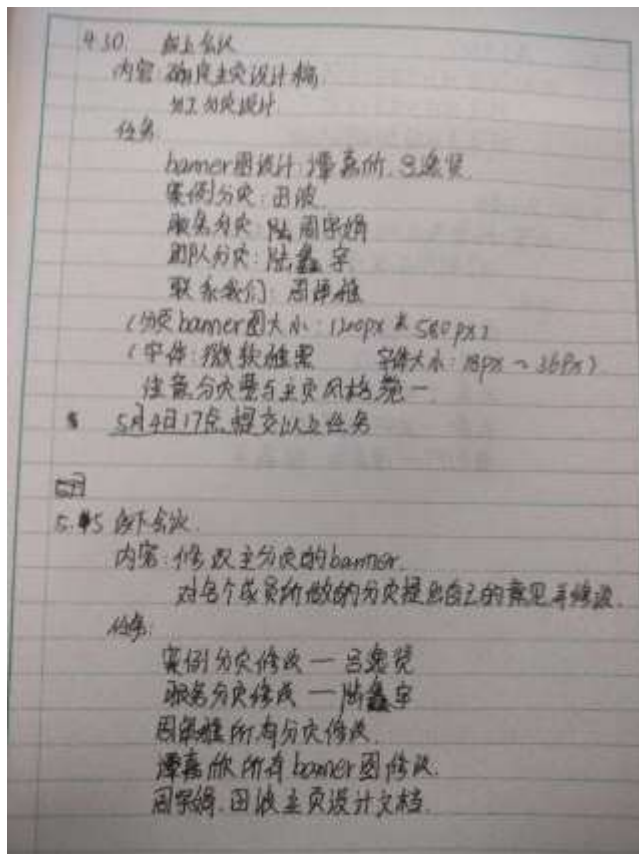 4.30. 线上会议
内容:确定主页设计稿.
分工分页设计
任务
banner图设计:谭嘉欣.吕逸贤
案例分页:田波.
服务分页:陆 周宇娟
团队分页:陆鑫宇
联系我们:周
(分页banner图大小:1200px * 580px)
(字体:微软雅黑 字体大小:18px ~ 36px)
注意分页要与主页风格统一.
5月4日17点.提交以上任务
5.5 线下会议.
内容:修改主分页的banner.
对各个成员所做的分页提出自己的意见并修改.
任务:
案例分页修改 — 吕逸贤
服务分页修改 — 陆鑫宇
周 所有分页修改.
谭嘉欣所有banner图修改.
周宇娟.田波主页设计文档.